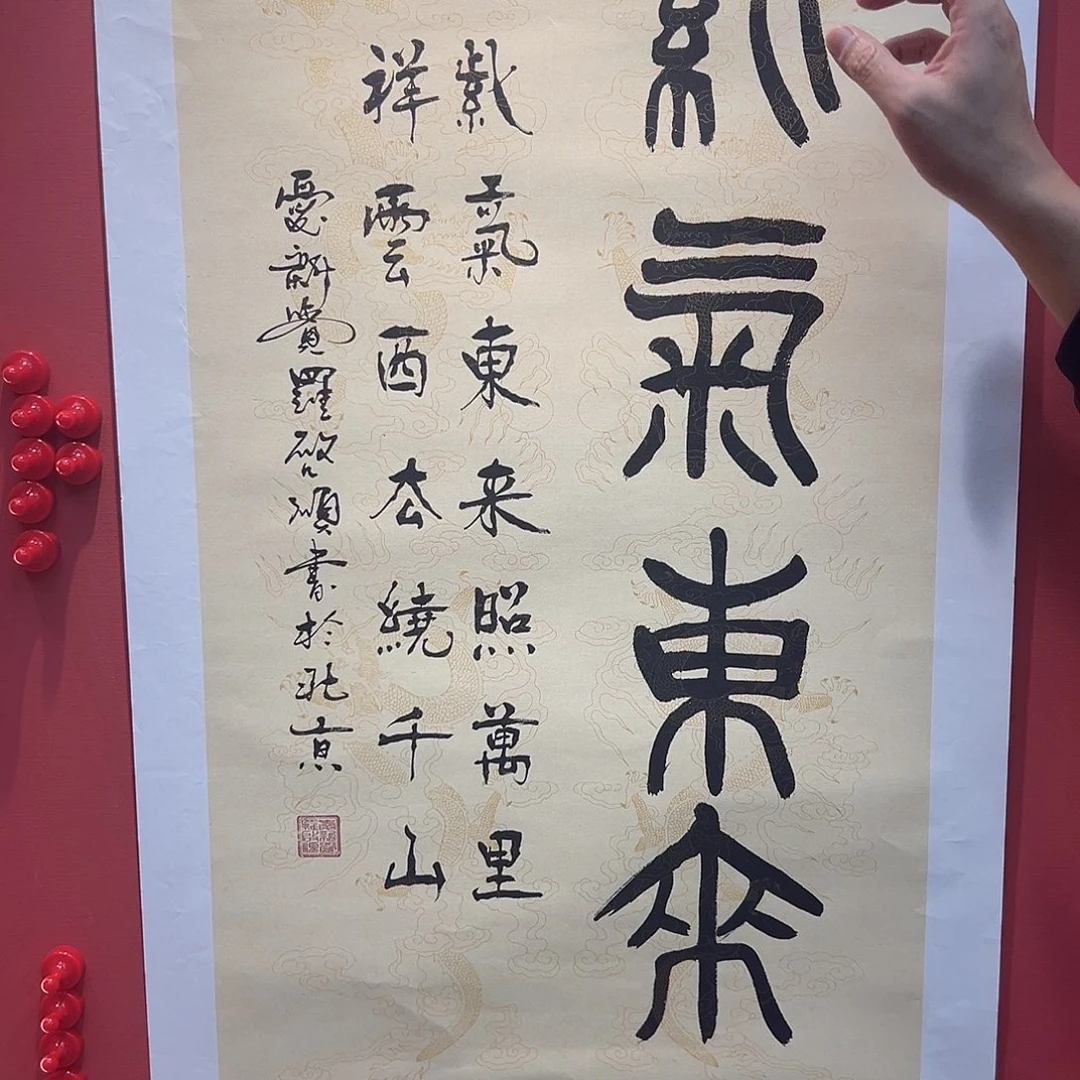 紫氣東來
紫氣東来照萬里
祥雲西去繞千山
愛新覺羅啓書於北京